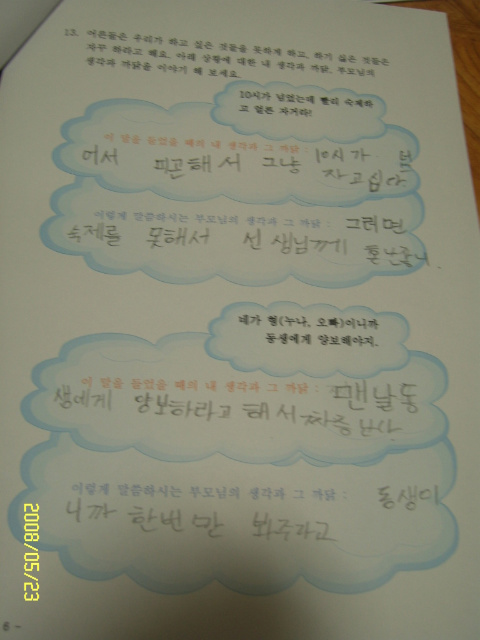 13. 어른들은 우리가 하고 싶은 것들을 못하게 하고, 하기 싫은 것들은
자꾸 하라고 해요. 아래 상황에 대한 내 생각과 까닭, 부모님의
생각과 까닭을 이야기 해 보세요.
10시가 넘었는데 빨리 숙제하
고 얼른 자거라!
이 말을 들었을 때의 내 생각과 그 까닭 : 10시가 넘
어서 피곤해서 그냥 자고십다
이렇게 말씀하시는 부모님의 생각과 그 까닭 : 그러면
숙제를 못해서 선생님께 혼난줄니.
네가 형(누나, 오빠)이니까
동생에게 양보해야지.
이 말을 들었을 때의 내 생각과 그 까닭 : 맨날동
생에게 양보하라고 해서 짜증난다.
이렇게 말씀하시는 부모님의 생각과 그 까닭 : 동생이
니까 한번만 봐주라고
2008/05/23
6 -